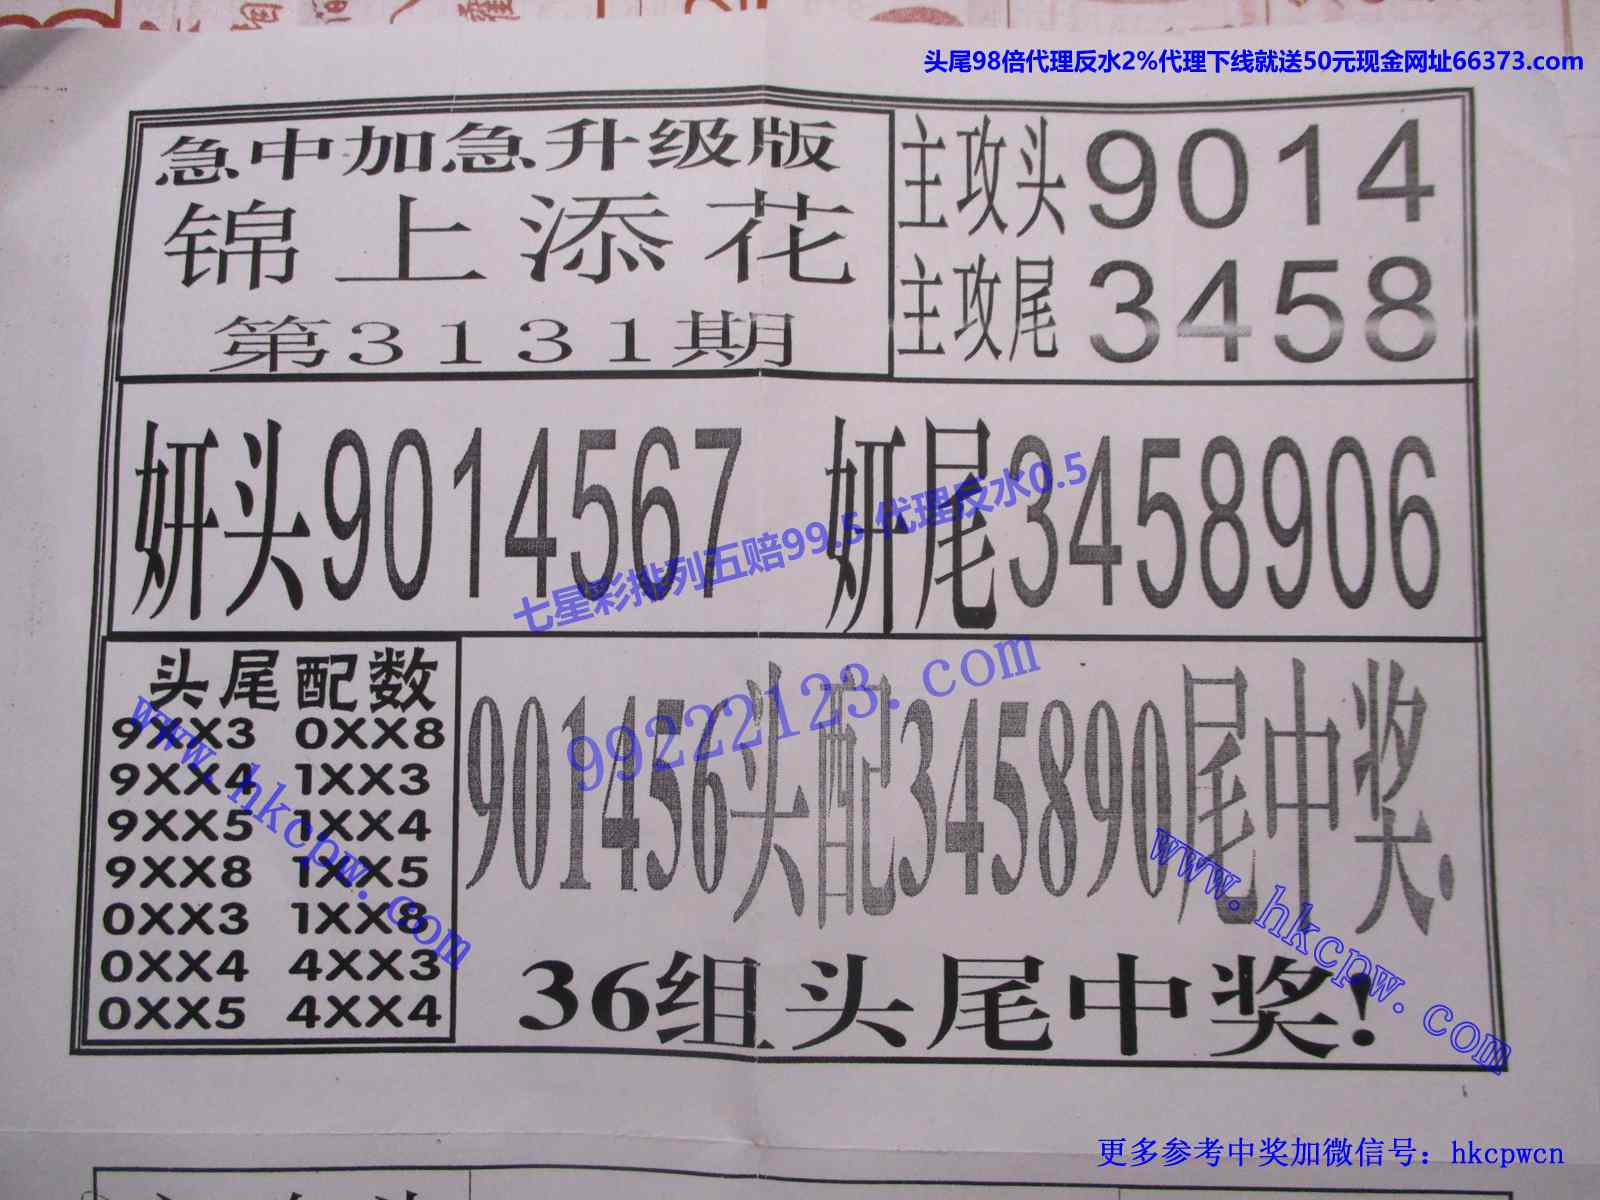 头尾98倍代理反水2%代理下线就送50元现金网址66373.com
急中加急升级版
锦上添花
第3131期
主攻头9014
主攻尾3458
妍头9014567
妍尾3458906
七星彩排列五赔99.5 代理反水0.5
99222123.com
头尾配数
9XX3 0XX8
9XX4 1XX3
9XX5 1XX4
9XX8 1XX5
0XX3 1XX8
0XX4 4XX3
0XX5 4XX4
www.hkcpw.com
901456头配345890尾中奖.
36组头尾中奖!
www.hkcpw.com
更多参考中奖加微信号：hkcpwcn